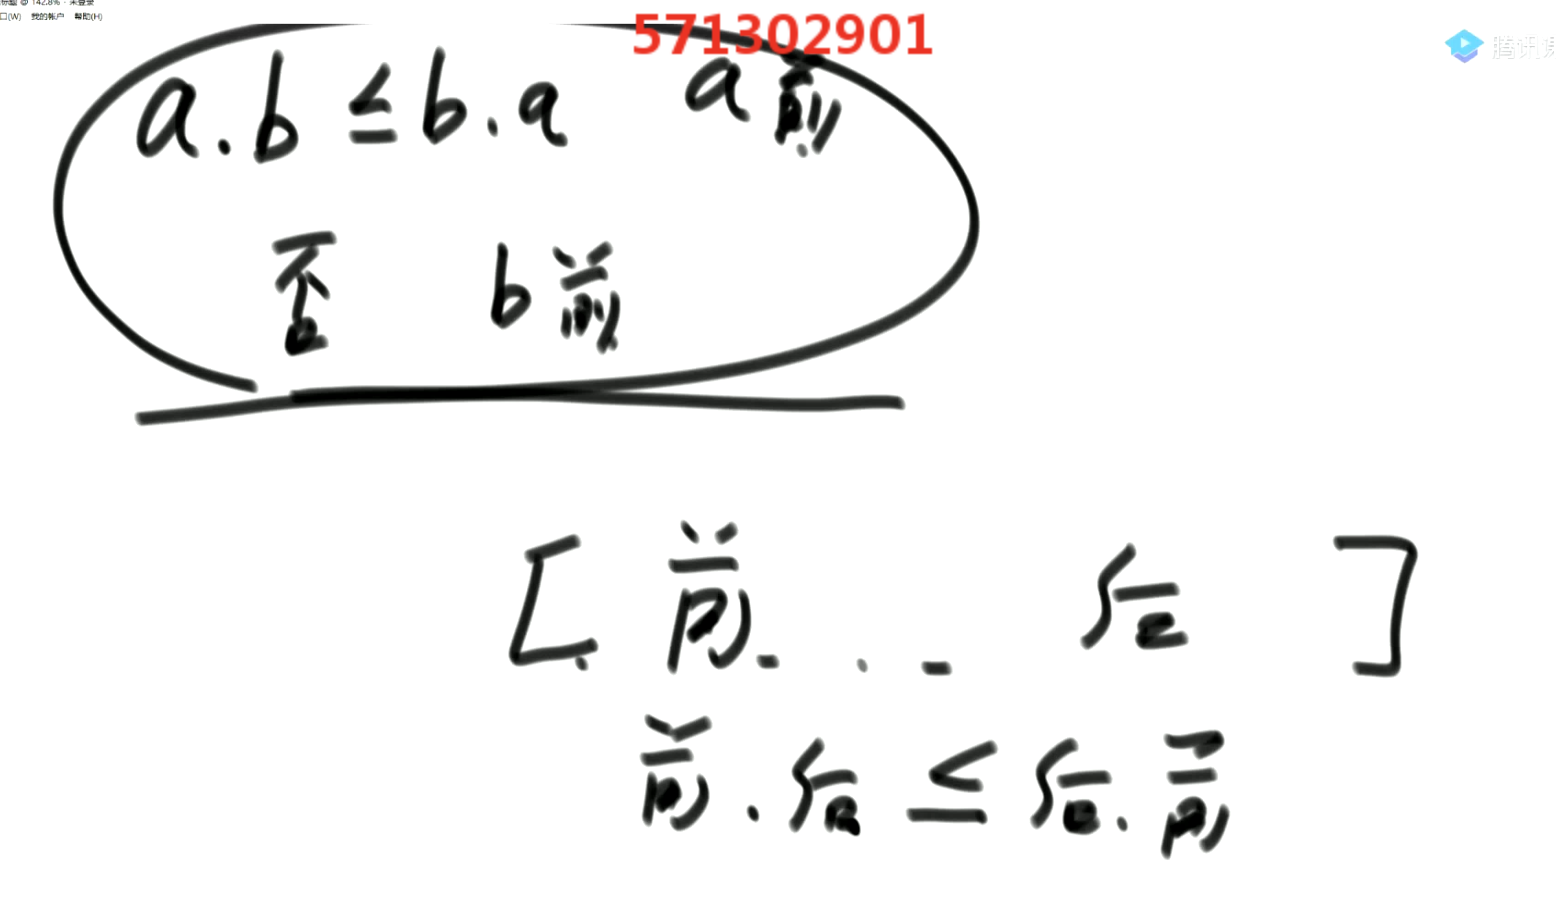 标题 @ 142.8% - 未登录
口(W) 我的帐户 帮助(H)
571302901
腾讯课
a.b ≤ b.a a前
否 b前
[ 前 . . . 后 ]
前.后 ≤ 后.前